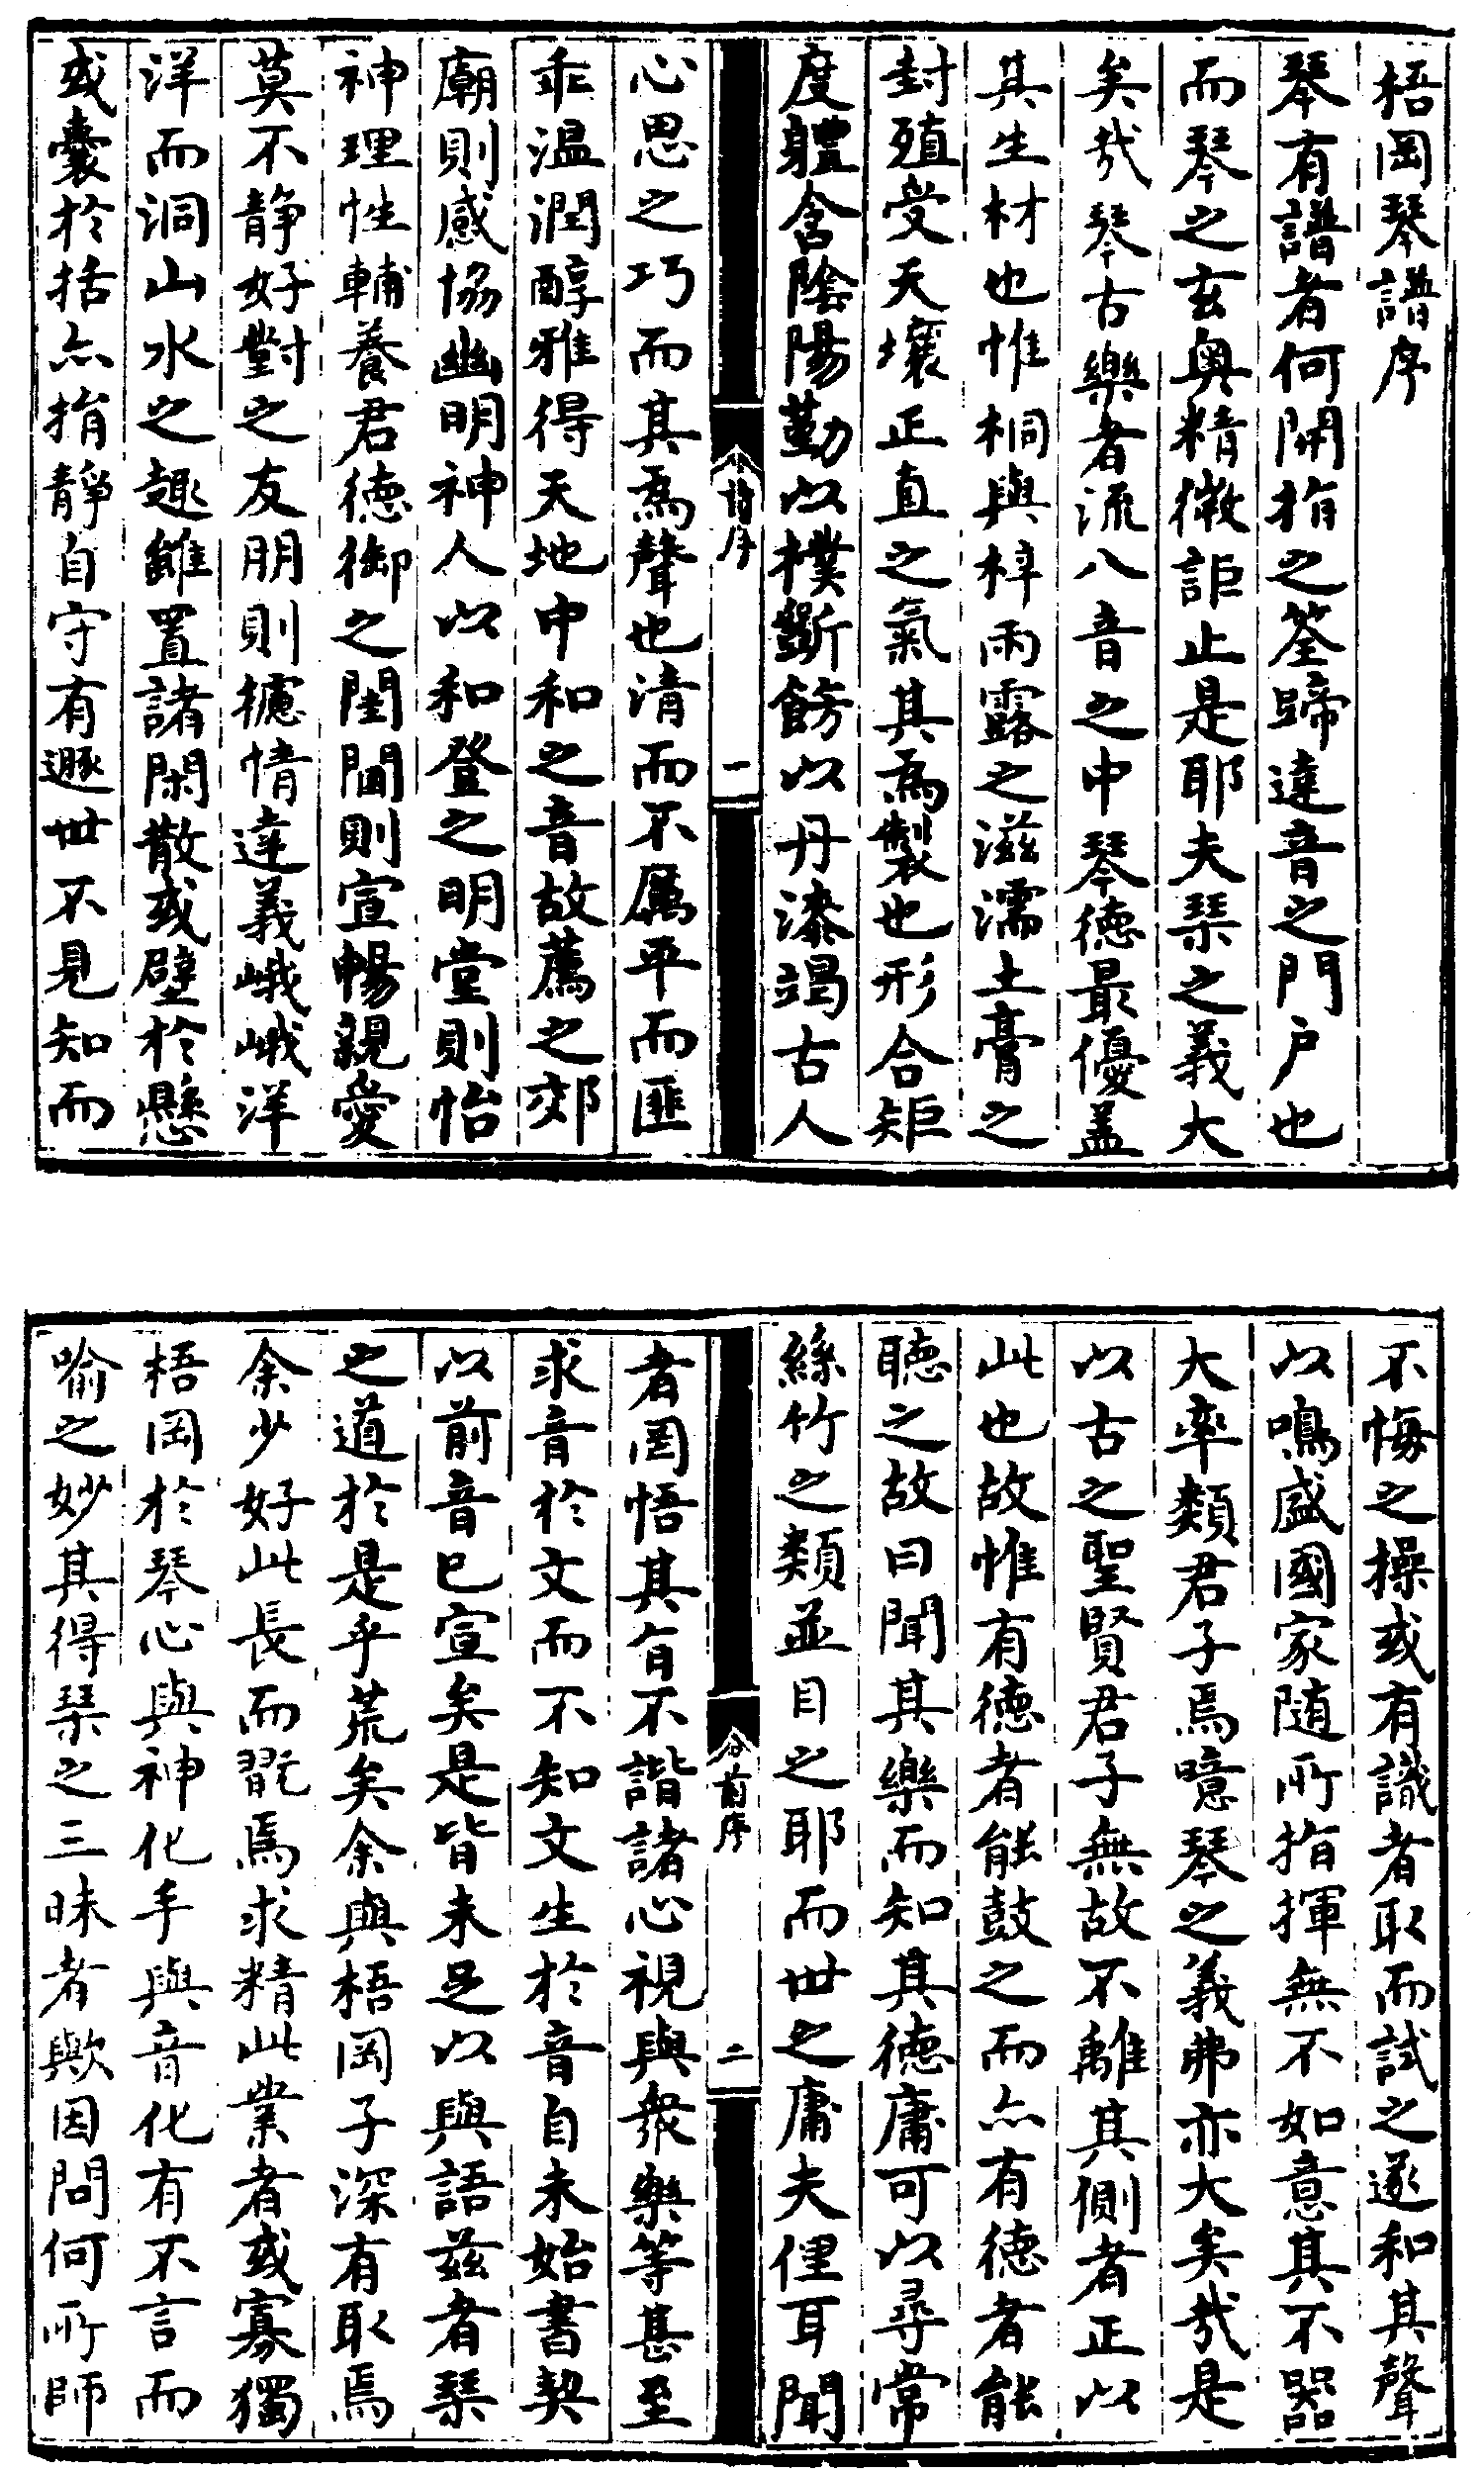 梧岡琴譜序
琴有譜者何開指之筌蹄達音之門戶也
而琴之玄奧精微詎止是耶夫琹之義大
矣哉琴古樂者流八音之中琴德最優盖
其生材也惟桐與梓雨露之滋濡土膏之
封殖受天壤正直之氣其爲製也形合矩
度軆含陰陽勤以樸斵餝以丹漆竭古人
心思之巧而其爲聲也清而不厲平而匪
乖温潤醇雅得天地中和之音故薦之郊
廟則感協幽明神人以和登之明堂則怡
神理性輔養君德御之閨閫則宣暢親愛
莫不静好對之友朋則攄情達義峨峨洋
洋而洞山水之趣雖置諸閑散或壁於懸
或囊於括亦指靜自守有遯世不見知而
不悔之操或有識者取而試之遂和其聲
以鳴盛國家随所指揮無不如意其不器
大率類君子焉噫琴之義弗亦大矣哉是
以古之聖賢君子無故不離其側者正以
此也故惟有德者能鼓之而亦有德者能
聽之故曰聞其樂而知其德庸可以尋常
絲竹之類並目之耶而世之庸夫俚耳聞
者罔悟其旨不諧諸心視與衆樂等甚至
求音於文而不知文生於音自未始書契
以前音已宣矣是皆未足以與語兹者琹
之道於是乎荒矣余與梧岡子深有取焉
余少好此長而翫焉求精此業者或寡獨
梧岡於琴心與神化手與音化有不言而
喻之妙其得琹之三昧者歟因問何所師